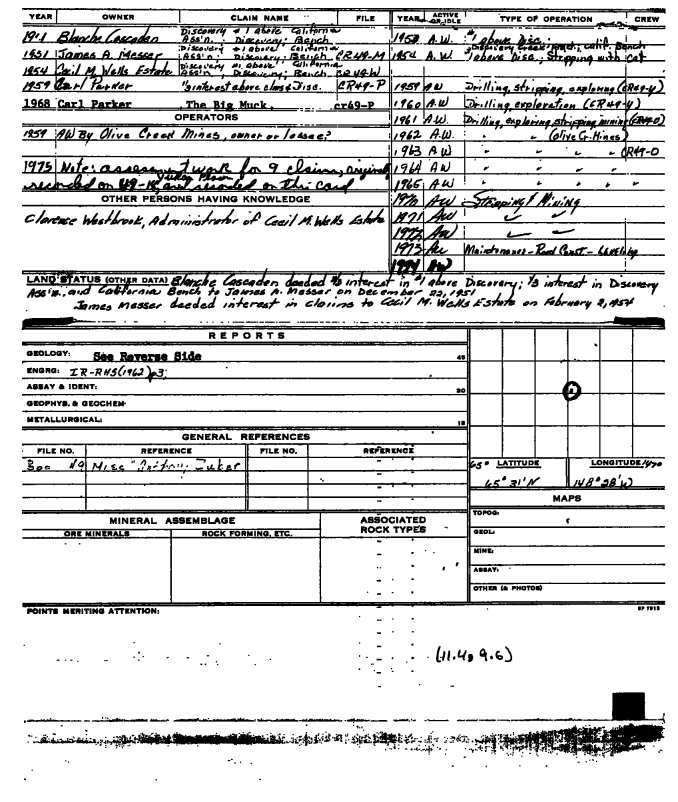 YEAR OWNER CLAIM NAME FILE
Discovery #1 above California
Blanche Cascaden Ass'n. Discovery; Bench
Discovery #1 above California
1951 James A. Messer Ass'n Discovery; Bench CR49-M
Discovery #1 above California
1954 Cecil M. Wells Estate Ass'n Discovery; Bench CR49-W
1959 Carl Parker interest above claims & Disc. CR49-P
1968 Carl Parker The Big Muck cr69-P
OPERATORS
1959 AW By Olive Creek Mines, owner or lessee?
1975 Note: assessment work for 9 claims, original
recorded on 49- and recorded on this card
OTHER PERSONS HAVING KNOWLEDGE
Clarence Westbrook, Administrator of Cecil M. Wells Estate
YEAR ACTIVE OR IDLE TYPE OF OPERATION CREW
A.W. #1 above Disc.
Discovery Creek Calif. Bench
1954 A.W. #1 above Disc.; Stripping with Cat
1959 AW Drilling, stripping, exploring (CR49-4)
1960 AW Drilling, exploration (CR49-4)
1961 AW Drilling, exploring, stripping, mining (CR49-O)
1962 A.W. " " (Olive Cr. Mines)
1963 AW " " " " CR49-O
1964 AW " " " "
1965 AW " " " "
1970 AW Stripping & Mining
1971 AW " "
1972 AW " "
1973 AW Maintenance - Road Const.
1974 AW
LAND STATUS (OTHER DATA) Blanche Cascaden deeded 2/3 interest in #1 above Discovery; 1/3 interest in Discovery
Ass'n. and California Bench to James A. Messer on December 22, 1951
James Messer deeded interest in claims to Cecil M. Wells Estate on February 2, 1954
REPORTS
GEOLOGY: See Reverse Side 45
ENGRG: IR-RHS(1962)p3;
ASSAY & IDENT: 30
GEOPHYS. & GEOCHEM:
METALLURGICAL: 15
GENERAL REFERENCES
FILE NO. REFERENCE FILE NO. REFERENCE
49 Misc
65° LATITUDE LONGITUDE 147°
65° 31'N 148° 28'W
MAPS
TOPOG:
GEOL:
MINE:
ASSAY:
OTHER (& PHOTOS)
MINERAL ASSEMBLAGE ASSOCIATED ROCK TYPES
ORE MINERALS ROCK FORMING, ETC.
POINTS MERITING ATTENTION:
(11.4, 9.6)